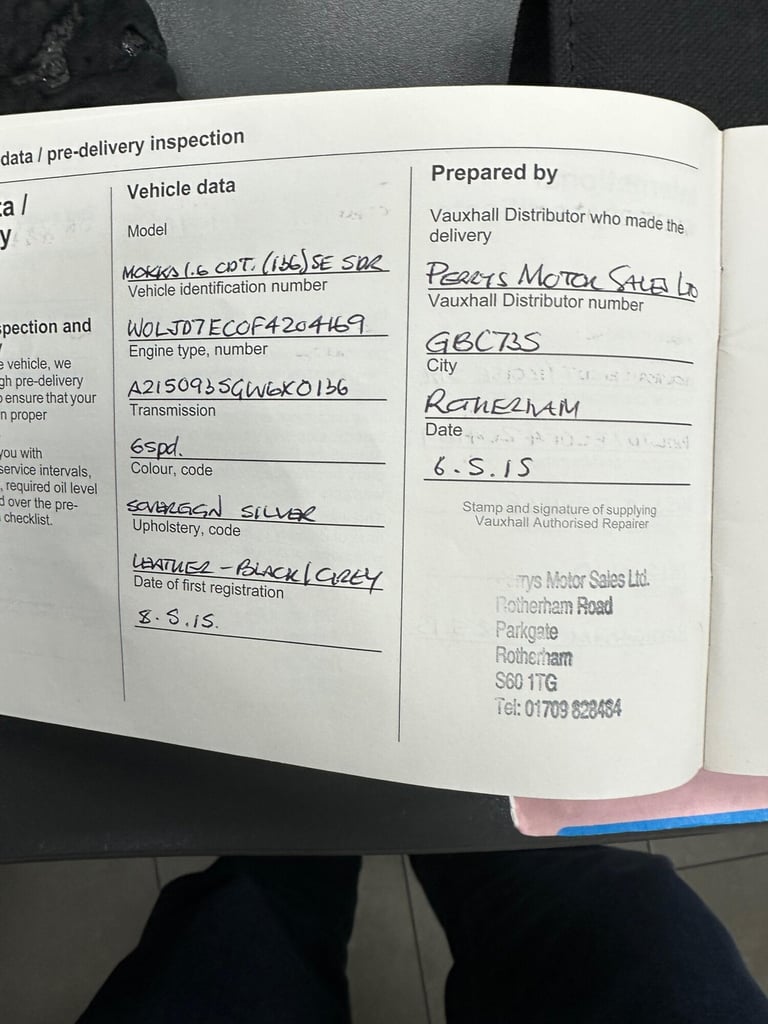 data / pre-delivery inspection
ta /
y
spection and
e vehicle, we
gh pre-delivery
o ensure that your
n proper
you with
service intervals,
, required oil level
d over the pre-
checklist.
Vehicle data
Model
MOKKA 1.6 CDT. (136) SE 5DR
Vehicle identification number
W0LJD7EC0F4204169
Engine type, number
A2150935GW6X0136
Transmission
6spd.
Colour, code
SOVEREIGN SILVER
Upholstery, code
LEATHER - BLACK / GREY
Date of first registration
8.5.15.
Prepared by
Vauxhall Distributor who made the
delivery
PERRYS MOTOR SALES LTD
Vauxhall Distributor number
GBC735
City
ROTHERHAM
Date
6.5.15
Stamp and signature of supplying
Vauxhall Authorised Repairer
rrys Motor Sales Ltd.
Rotherham Road
Parkgate
Rotherham
S60 1TG
Tel: 01709 828484